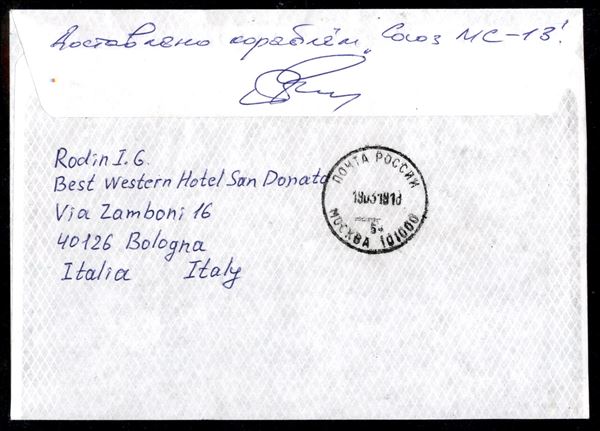 Доставлено кораблём „Союз МС-13"!
Rodin I. G.
Best Western Hotel San Donato
Via Zamboni 16
40126 Bologna
Italia Italy
ПОЧТА РОССИИ
МОСКВА 101000